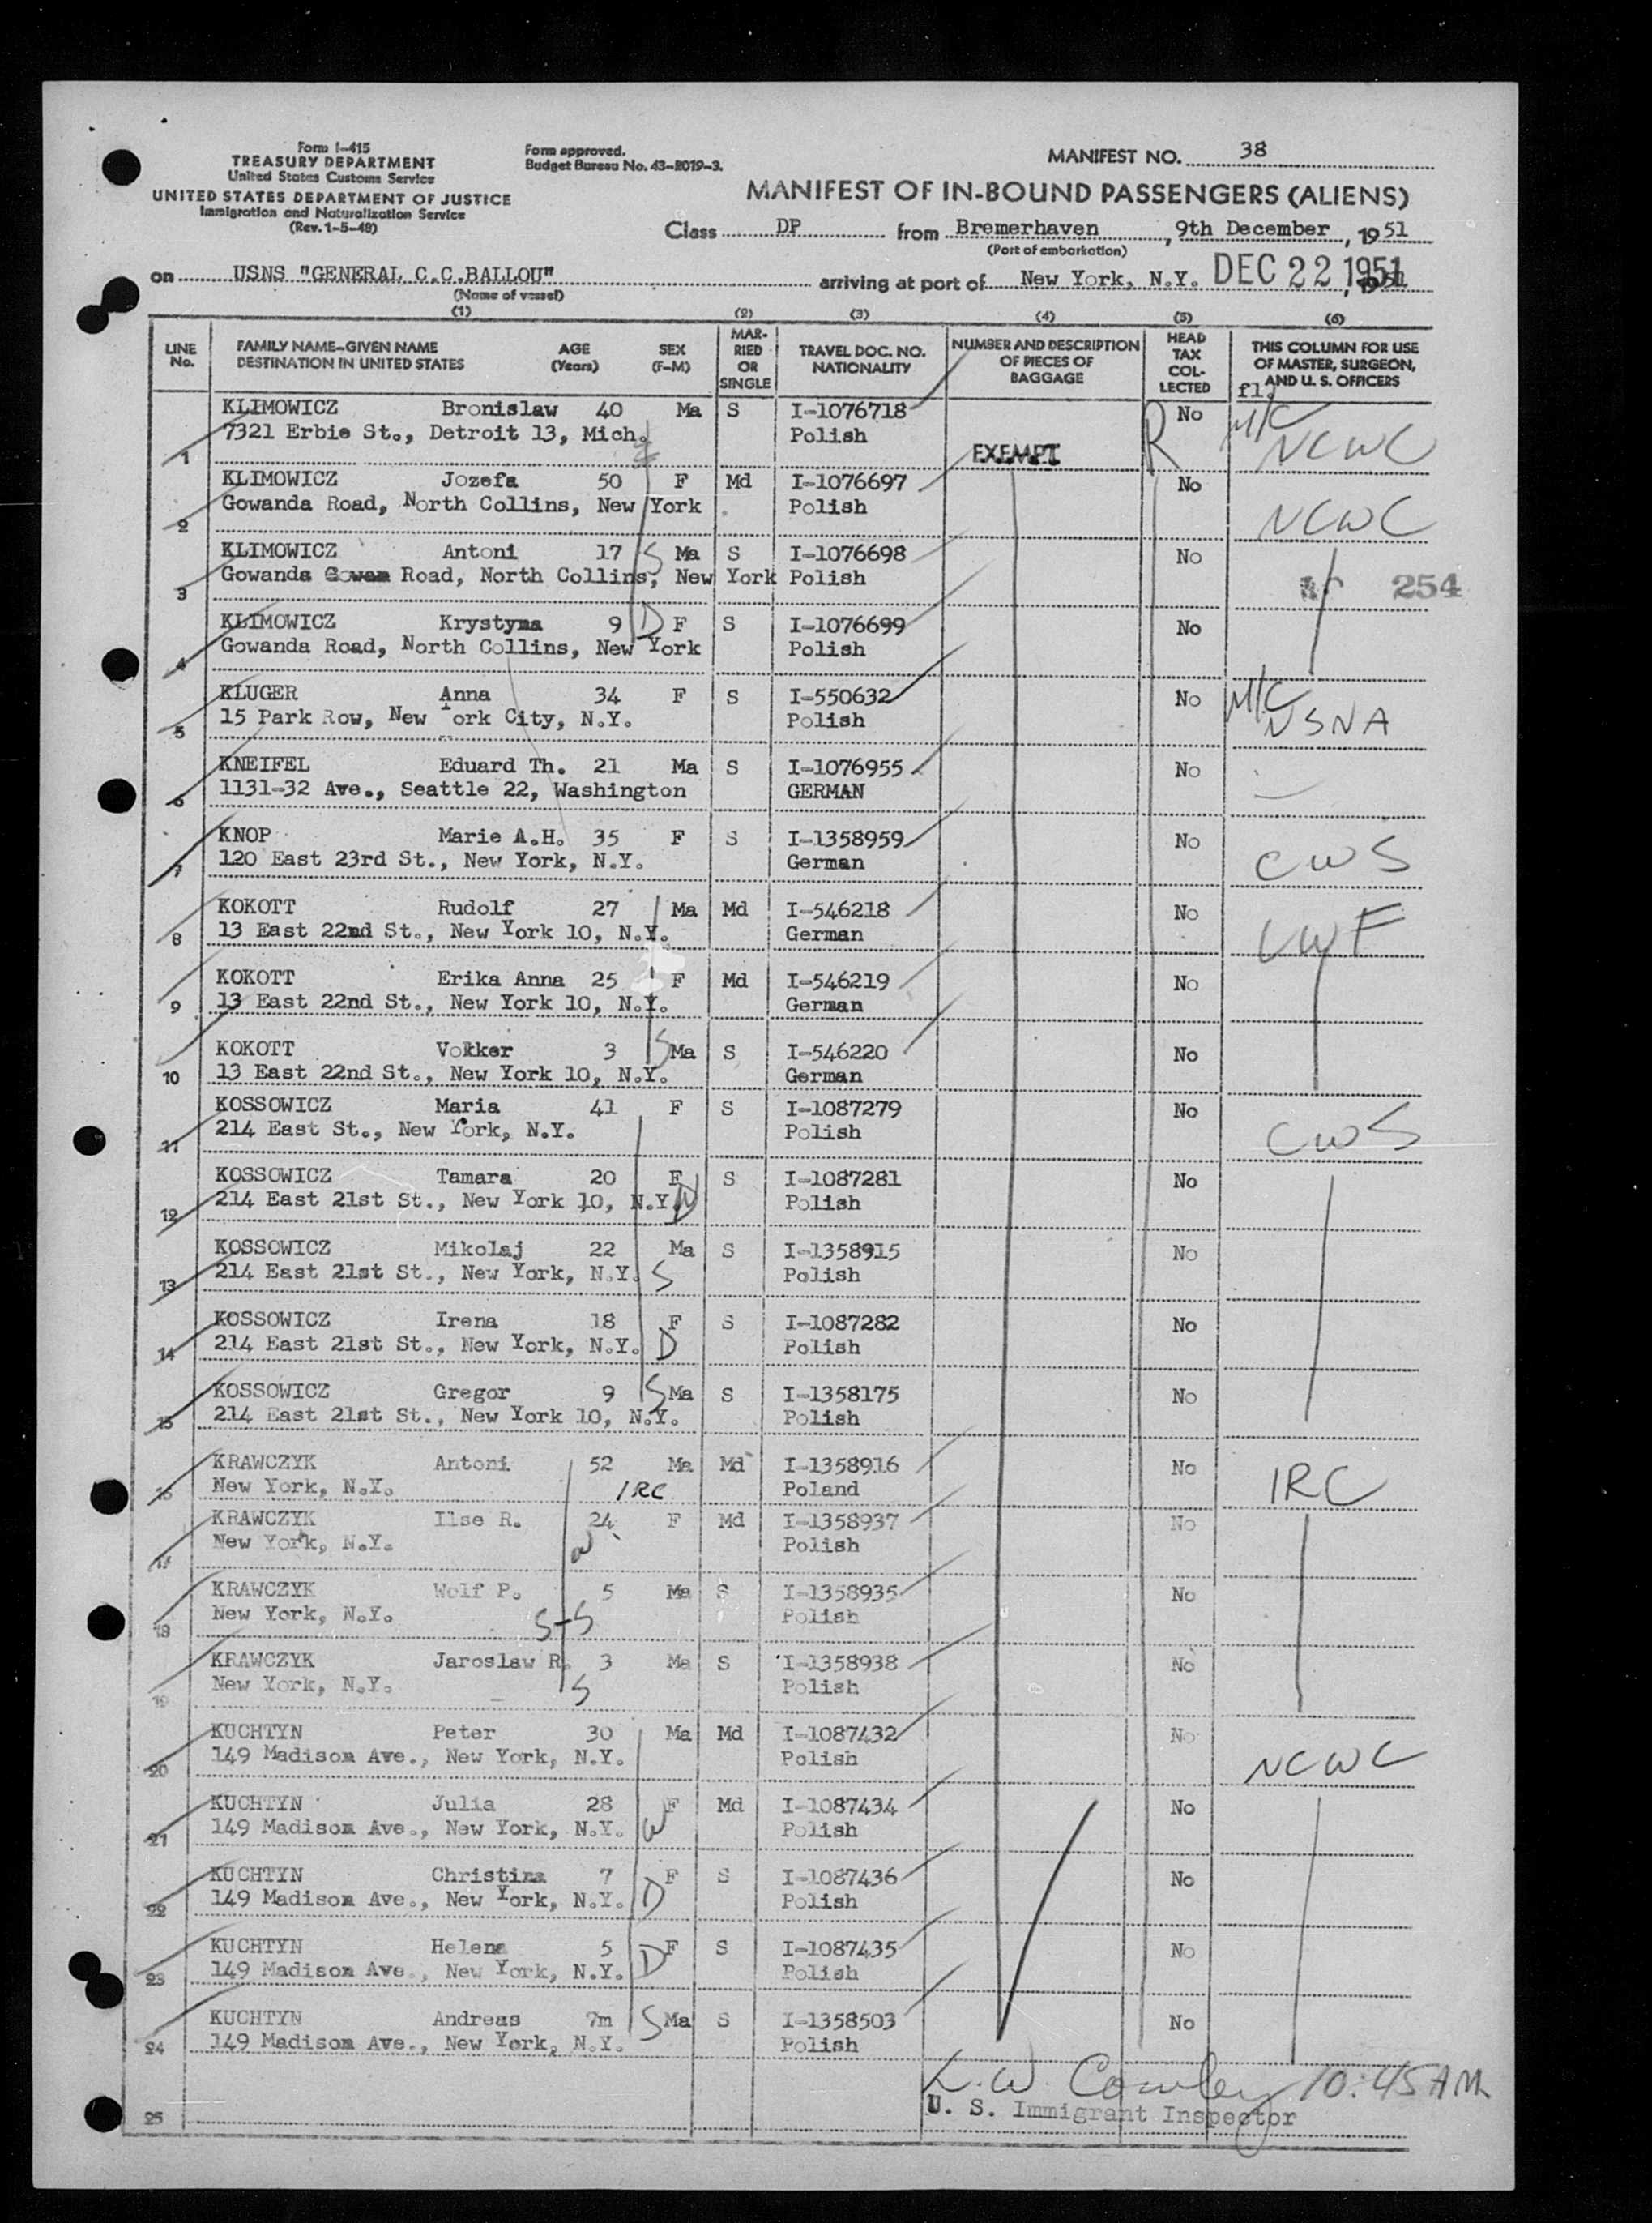 Form I-415
TREASURY DEPARTMENT
United States Customs Service
UNITED STATES DEPARTMENT OF JUSTICE
Immigration and Naturalization Service
(Rev. 1-5-49)
Form approved.
Budget Bureau No. 43-R019-3.
MANIFEST NO. 38
MANIFEST OF IN-BOUND PASSENGERS (ALIENS)
Class DP from Bremerhaven, 9th December, 1951
(Port of embarkation)
on USNS "GENERAL C.C.BALLOU" arriving at port of New York, N.Y. DEC 22 1951
(Name of vessel)
(1) (2) (3) (4) (5) (6)
LINE No. FAMILY NAME-GIVEN NAME DESTINATION IN UNITED STATES AGE (Years) SEX (F-M) MARRIED OR SINGLE TRAVEL DOC. NO. NATIONALITY NUMBER AND DESCRIPTION OF PIECES OF BAGGAGE HEAD TAX COLLECTED THIS COLUMN FOR USE OF MASTER, SURGEON, AND U. S. OFFICERS
fl.
KLIMOWICZ Bronislaw 40 Ma S I-1076718 No M/C
1 7321 Erbie St., Detroit 13, Mich. Polish EXEMPT R NCWC
KLIMOWICZ Jozefa 50 F Md I-1076697 No
2 Gowanda Road, North Collins, New York Polish NCWC
KLIMOWICZ Antoni 17 S Ma S I-1076698 No
3 Gowands Gowan Road, North Collins, New York Polish 254
KLIMOWICZ Krystyna 9 D F S I-1076699 No
4 Gowanda Road, North Collins, New York Polish
KLUGER Anna 34 F S I-550632 No M/C
5 15 Park Row, New York City, N.Y. Polish USNA
KNEIFEL Eduard Th. 21 Ma S I-1076955 No
6 1131-32 Ave., Seattle 22, Washington GERMAN
KNOP Marie A.H. 35 F S I-1358959 No
7 120 East 23rd St., New York, N.Y. German CWS
KOKOTT Rudolf 27 Ma Md I-546218 No
8 13 East 22nd St., New York 10, N.Y. German LWF
KOKOTT Erika Anna 25 F Md I-546219 No
9 13 East 22nd St., New York 10, N.Y. German
KOKOTT Vokker 3 S Ma S I-546220 No
10 13 East 22nd St., New York 10, N.Y. German
KOSSOWICZ Maria 41 F S I-1087279 No
11 214 East St., New York, N.Y. Polish CWS
KOSSOWICZ Tamara 20 F S I-1087281 No
12 214 East 21st St., New York 10, N.Y. D Polish
KOSSOWICZ Mikolaj 22 Ma S I-1358915 No
13 214 East 21st St., New York, N.Y. S Polish
KOSSOWICZ Irena 18 F S I-1087282 No
14 214 East 21st St., New York, N.Y. D Polish
KOSSOWICZ Gregor 9 S Ma S I-1358175 No
15 214 East 21st St., New York 10, N.Y. Polish
KRAWCZYK Antoni 52 Ma Md I-1358916 No
16 New York, N.Y. IRC Poland IRC
KRAWCZYK Ilse R. 24 F Md I-1358937 No
17 New York, N.Y. W Polish
KRAWCZYK Wolf P. 5 Ma S I-1358935 No
18 New York, N.Y. S-S Polish
KRAWCZYK Jaroslaw R. 3 Ma S I-1358938 No
19 New York, N.Y. S Polish
KUCHTYN Peter 30 Ma Md I-1087432 No
20 149 Madison Ave., New York, N.Y. Polish NCWC
KUCHTYN Julia 28 F Md I-1087434 No
21 149 Madison Ave., New York, N.Y. W Polish
KUCHTYN Christina 7 F S I-1087436 No
22 149 Madison Ave., New York, N.Y. D Polish
KUCHTYN Helena 5 F S I-1087435 No
23 149 Madison Ave., New York, N.Y. D Polish
KUCHTYN Andreas 7m S Ma S I-1358503 No
24 149 Madison Ave., New York, N.Y. Polish
L.W. Cowley 10:45 AM
25 U. S. Immigrant Inspector